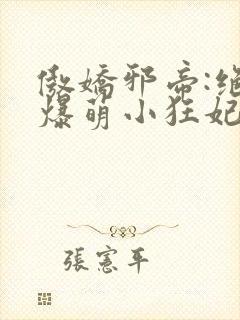 傲嬌邪帝:絕
爆萌小狂妃
張憲平